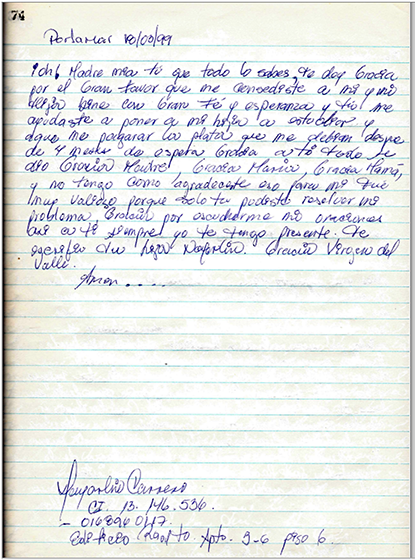 74
Porlamar
¡Oh! Madre mia tú que todo lo sabes, te doy Gracia
por el Gran favor que me concediste a mi y mi
bine con Gran Fé y esperanza y tú me
ayudaste a poner a mi hija a estudiar y
aque me pagaran la plata que me debian despue
de 4 meses de espera Gracia a tí todo se
dio Gracia Madre, Gracia Maria, Gracia Mamá,
y no tengo como agradecerte eso para mi fue
muy valioso porque solo tu pudiste resolver mi
problema, Gracia por escucharme mi oraciones
a ti siempre yo te tengo presente. Te
tu hija Gracia Virgen del
Valle.
Amen.....
Carrero
CI. 13. 146. 536.
Edificio Apto. 3-6 piso 6